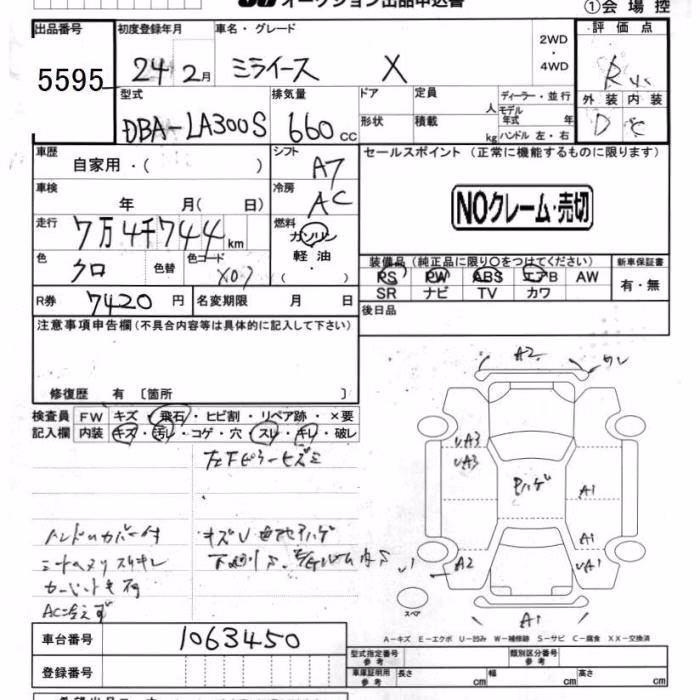 オークション出品申込書
①会場控
出品番号 初度登録年月 車名・グレード 評価点
5595 24年 2月 ミライース X 2WD・4WD R
型式 排気量 ドア 定員 人 ディーラー・並行 外装 内装
DBA-LA300S 660cc 形状 積載 kg モデル年式 年 ハンドル 左・右 D C
車歴 自家用・( ) シフト A7 セールスポイント (正常に機能するものに限ります)
車検 年 月( 日) 冷房 AC NOクレーム・売切
走行 7万4千744km 燃料 ガソリン
軽油・( )
色 クロ 色替 色コード X07
装備品 (純正品に限り○をつけてください) 新車保証書
PS PW ABS エアB AW 有・無
SR ナビ TV カワ
R券 7420円 名変期限 月 日 後日品
注意事項申告欄(不具合内容等は具体的に記入して下さい)
修復歴 有〔箇所 〕
検査員 FW キズ・飛石・ヒビ割・リペア跡・×要
記入欄 内装 キズ・汚レ・コゲ・穴・スレ・キレ・破レ
左下ピラーヒズミ
ハンドルカバー付
AC冷えず
A2 ワレ
UA3
UA3
Pハゲ
A1
A1
A2 UA1
スペア A1
A-キズ E-エクボ U-凹み W-補修跡 S-サビ C-腐食 XX-交換済
車台番号 1063450
型式指定番号 参考 類別区分番号 参考
登録番号 車庫証明用 参考 長さ cm 幅 cm 高さ cm